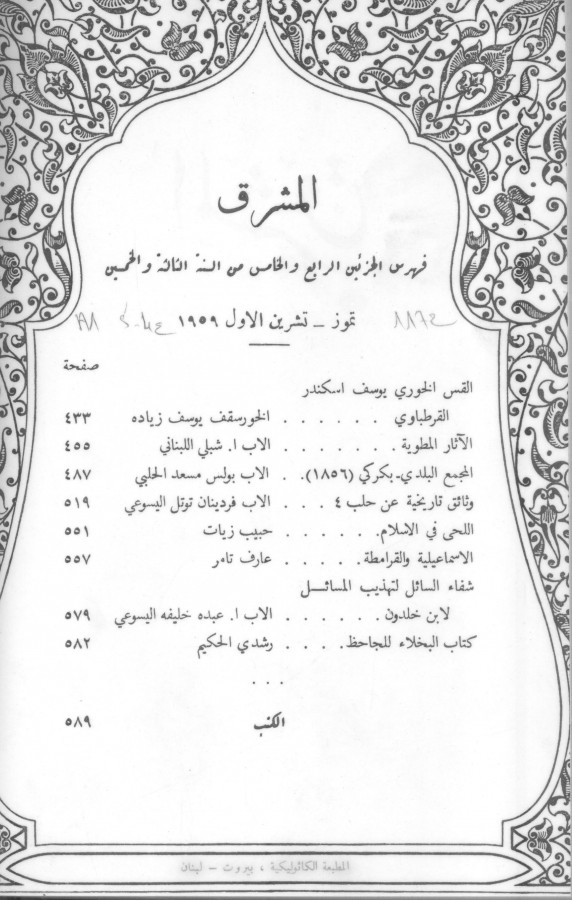 المشرق
فهرس الجزئين الرابع والخامس من السنة الثالثة والخمسين
تموز – تشرين الاول ١٩٥٩
صفحة
القس الخوري يوسف اسكندر
القرطباوي . . . . . . الخورسقف يوسف زياده ٤٣٣
الآثار المطوية . . . . . . . الاب ا. شبلي اللبناني ٤٥٥
المجمع البلدي-بكركي (١٨٥٦). . الاب بولس مسعد الحلبي ٤٨٧
وثائق تاريخية عن حلب ٤ . . . الاب فردينان توتل اليسوعي ٥١٩
اللحى في الاسلام. . . . . . . حبيب زيات ٥٥١
الاسماعيلية والقرامطة. . . . . عارف تامر ٥٥٧
شفاء السائل لتهذيب المسائل
لابن خلدون . . . . . . الاب ا. عبده خليفه اليسوعي ٥٧٩
كتاب البخلاء للجاحظ. . . . . رشدي الحكيم ٥٨٢
. . .
الكتب ٥٨٩
المطبعة الكاثوليكية ، بيروت – لبنان